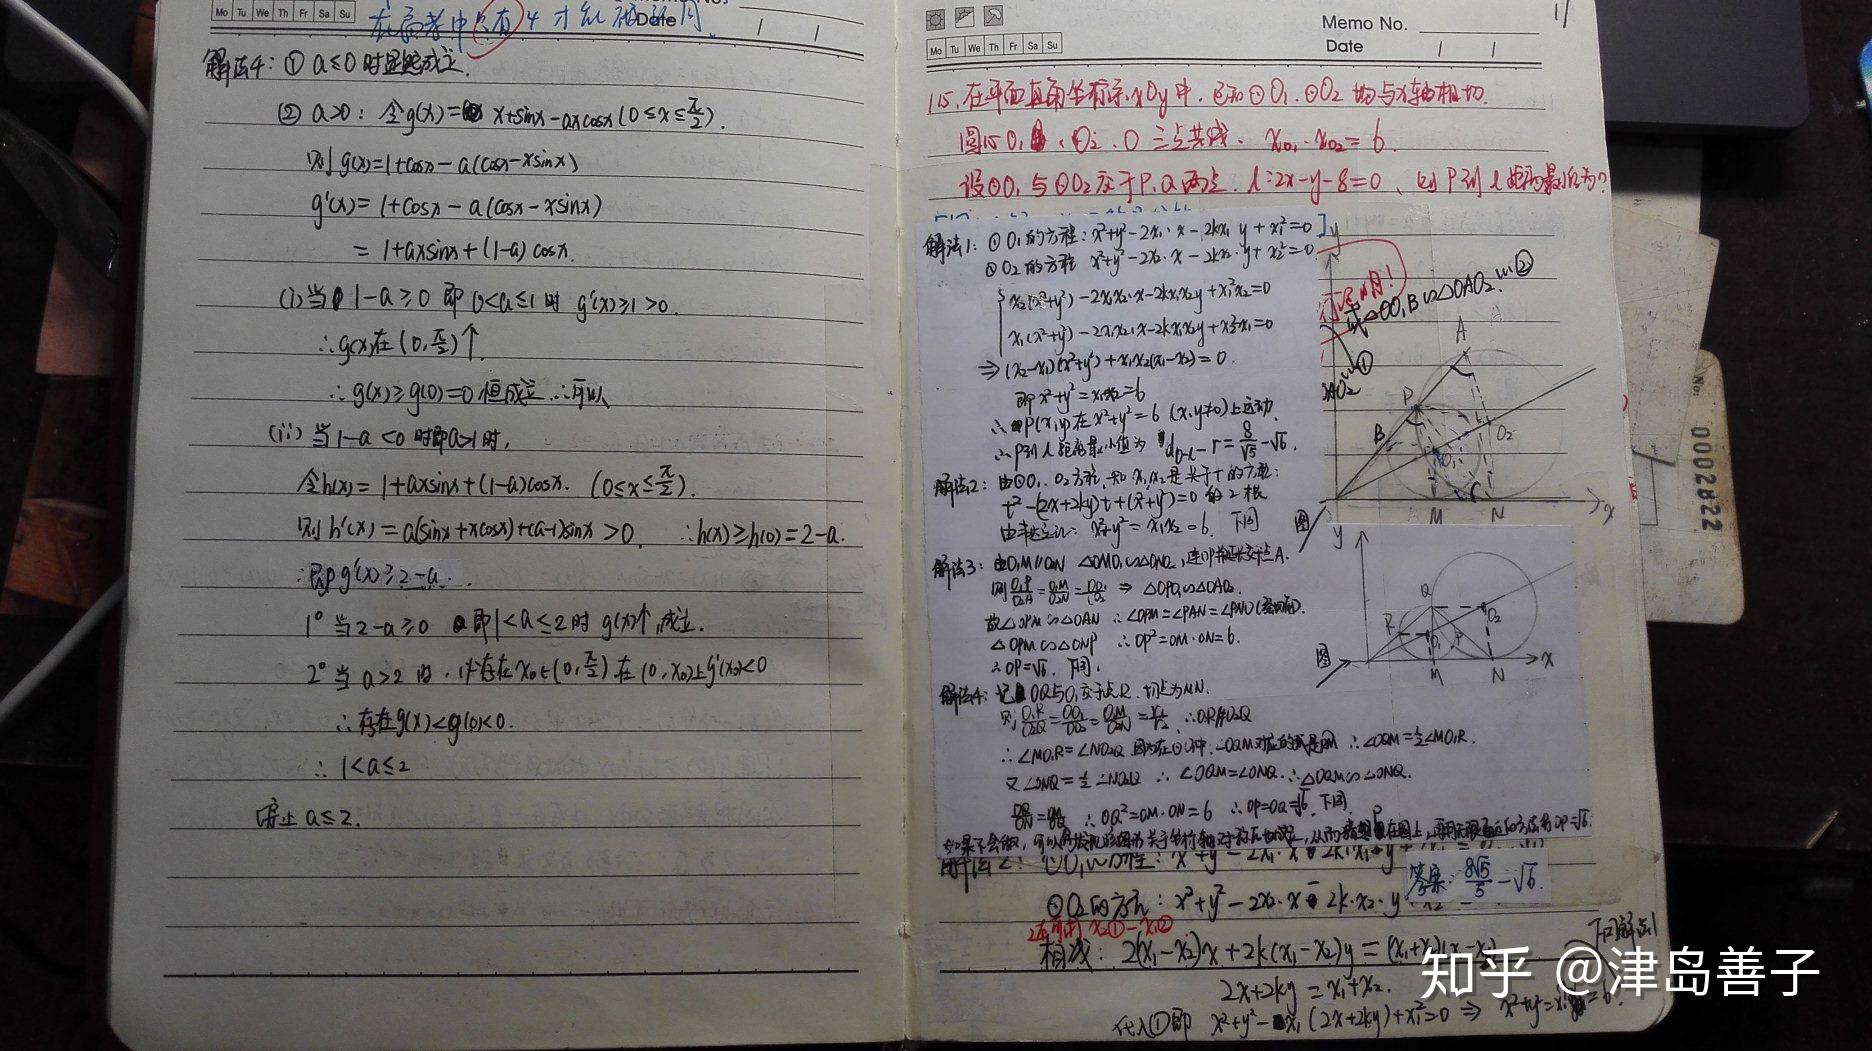 Mo Tu We Th Fr Sa Su
Memo No.
Date
在高考中只有4才能
解法4：① a≤0时显然成立.
② a>0：令g(x)= x+sinx-axcosx (0≤x≤π/2).
则g(x)=1+cosx-a(cosx-xsinx)
g'(x)=1+cosx-a(cosx-xsinx)
=1+axsinx+(1-a)cosx.
(i)当1-a≥0 即0<a≤1时 g'(x)≥1>0.
∴g(x)在(0,π/2)↑.
∴g(x)≥g(0)=0恒成立 ∴可以
(ii)当1-a<0时即a>1时,
令h(x)=1+axsinx+(1-a)cosx. (0≤x≤π/2).
则h'(x)=a(sinx+xcosx)+(a-1)sinx>0. ∴h(x)≥h(0)=2-a.
∴即g'(x)≥2-a.
1° 当2-a≥0 即1<a≤2时 g(x)↑,成立.
2° 当a>2时. 存在x₀∈(0,π/2) 在(0,x₀)上g'(x₀)<0
∴存在g(x)<g(0)<0.
∴1<a≤2
综上 a≤2.
Memo No.
Date
Mo Tu We Th Fr Sa Su
115.在平面直角坐标系xOy中.已知⊙O₁.⊙O₂均与x轴相切.
圆心O₁.O₂.O三点共线. x_{O₁}·x_{O₂}=6.
设⊙O₁与⊙O₂交于P.Q两点. l:2x-y-8=0、则P到l距离最小值为?
解法1：⊙O₁的方程: x²+y²-2x₁·x-2kx₁y+x₁²=0
⊙O₂的方程 x²+y²-2x₂·x-2kx₂·y+x₂²=0
x₂(x²+y²)-2x₁x₂·x-2kx₁x₂y+x₁²x₂=0
x₁(x²+y²)-2x₁x₂x-2kx₁x₂y+x₂²x₁=0
⇒(x₂-x₁)(x²+y²)+x₁x₂(x₁-x₂)=0.
即x²+y²=x₁x₂=6
∴P(x,y)在x²+y²=6 (x,y≠0)上运动.
∴P到l距离最小值为 d_{O-l}-r=8/√5-√6.
解法2：由⊙O₁.O₂方程知x₁,x₂是关于t的方程:
t²-(2x+2ky)t+(x²+y²)=0 的2根
由韦达定理: x²+y²=x₁x₂=6. 下同
解法3：由O₁M∥O₂N △OMO₁∽△ONO₂, 连OP并延长交于点A.
则O₁P/O₂A=O₁M/O₂N=OO₁/OO₂ ⇒ △OPO₁∽△OAO₂.
故△OPM∽△OAN ∴∠OPM=∠PAN=∠PNO(弦切角).
△OPM∽△ONP ∴OP²=OM·ON=6.
∴OP=√6. 下同.
解法4：记OQ与O₁交于点R. 切点为M,N.
则O₁R/O₂Q=OO₁/OO₂=O₁M/O₂N=r₁/r₂ ∴O₁R∥O₂Q
∴∠MO₁R=∠NO₂Q 因为在⊙O₁中.∠OQM对应的弧是RM ∴∠OQM=½∠MO₁R.
又∠ONQ=½∠NO₂Q ∴∠OQM=∠ONQ.∴△OQM∽△ONQ.
∴OQ²=OM·ON=6 ∴OP=OQ=√6. 下同
△OO₁B∽△OAO₂ ...②
y
A
P
B
O₂
O₁
C
M
N
x
图
y
Q
O₂
R
O₁
P
M
N
x
图
答案: 8√5/5-√6.
⊙O₂的方程: x²+y²-2x₂·x-2k·x₂·y
相减: 2(x₁-x₂)x+2k(x₁-x₂)y=(x₁+x₂)(x₁-x₂)
下同解法1
2x+2ky=x₁+x₂.
代入①即 x²+y²-x₁(2x+2ky)+x₁²=0 ⇒ x²+y²=x₁x₂=6.
0002822
No:
知乎 @津岛善子